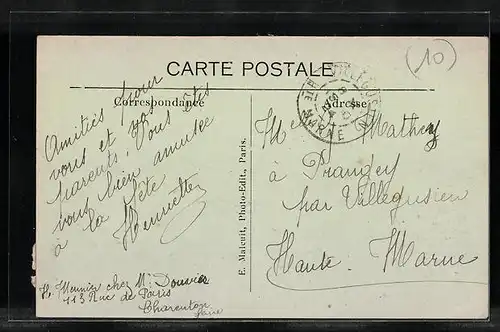 (10)
CARTE POSTALE
Correspondance
Adresse
Amitiés pour
vous et vos
parents. Vous êtes
vous bien amusée
à la fête
Henriette
H. Meunier chez Mr
113 Rue de Paris
Charenton
Seine
E. Malcuit, Photo-Edit., Paris.
HTE MARNE
Mathey
à Prangey
par Villegusien
Haute-Marne